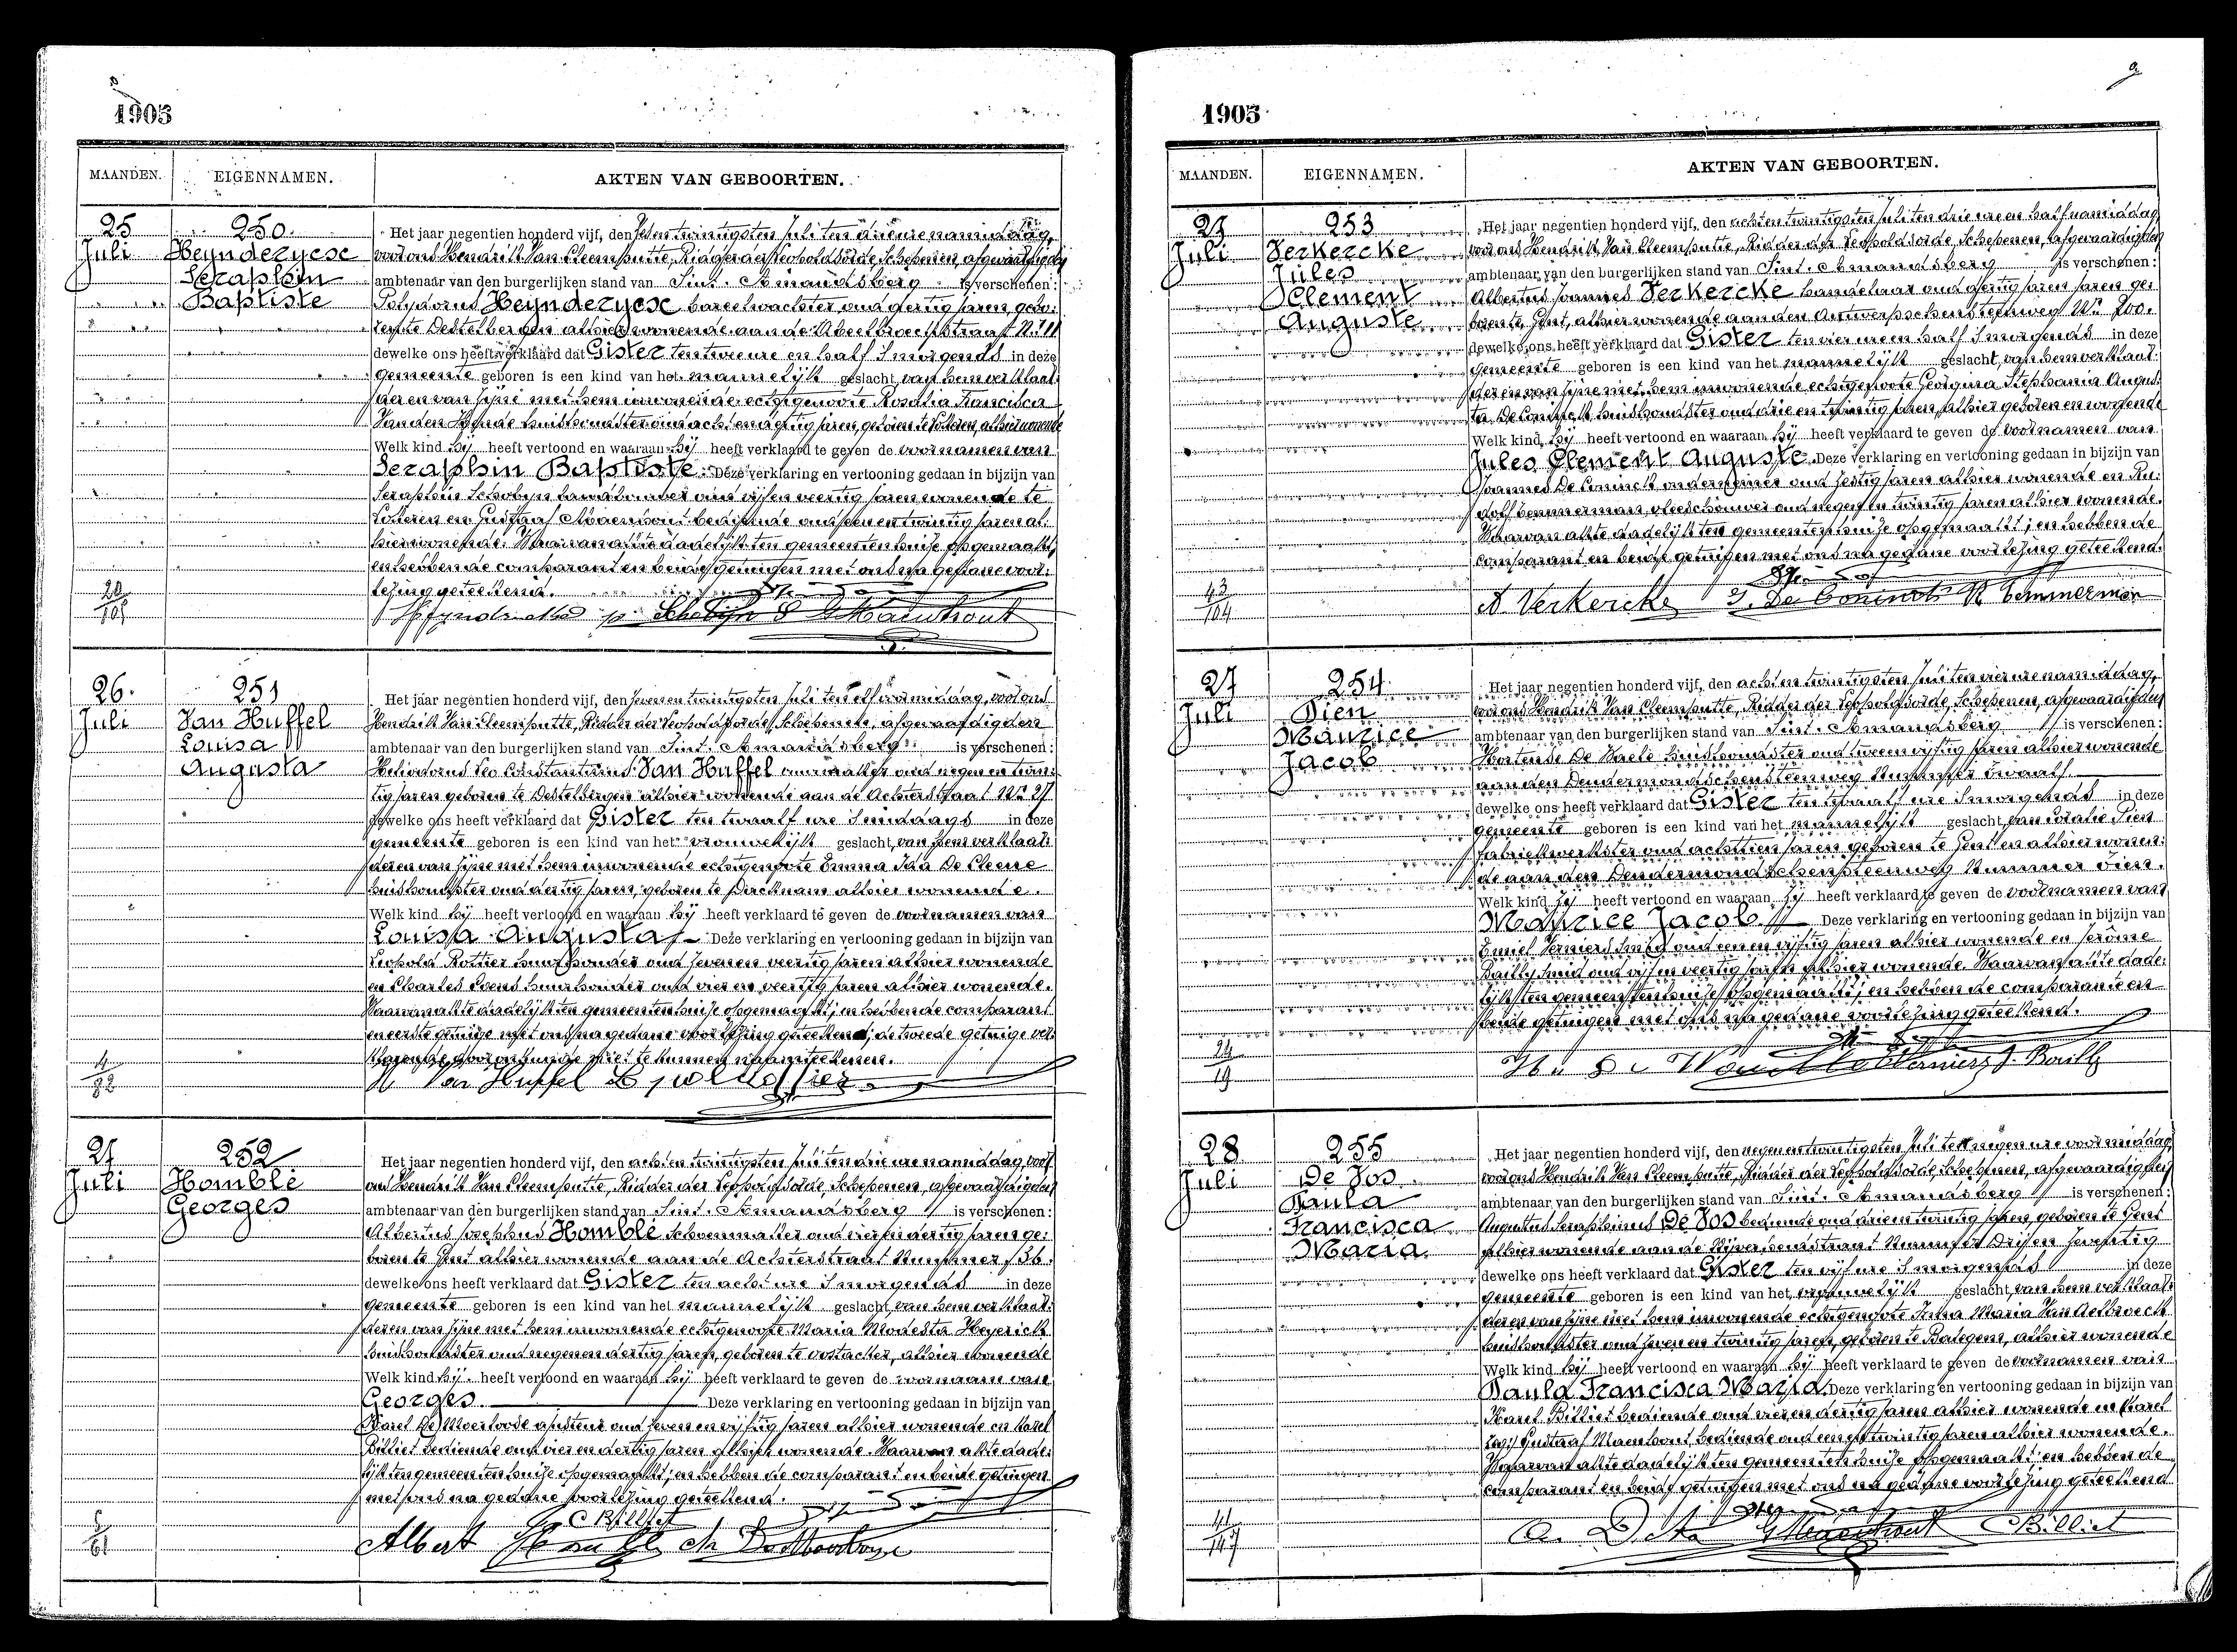 1905
MAANDEN. EIGENNAMEN. AKTEN VAN GEBOORTEN.
25 Juli
250.
Heynderycx
Seraphin
Baptiste
Het jaar negentien honderd vijf, den zesentwintigsten Juli ten drie ure namiddag,
voor ons Hendrik Van Cleemputte, Ridder der Leopoldsorde, Schepenen, afgevaardigden
ambtenaar van den burgerlijken stand van Sint. Amandsberg is verschenen:
Polydorus Heynderycx bareelwachter oud dertig jaren gebo:
ren te Destelbergen alhier wonende aan de
dewelke ons heeft verklaard dat Gister ten twee ure en half s'morgends in deze
gemeente geboren is een kind van het mannelijk geslacht, van hem verklaar:
der en van zijne met hem inwonende echtgenoote Rosalia Francisca
huishoudster oud acht en dertig jaren, geboren te alhier wonende
Welk kind hij heeft vertoond en waaraan hij heeft verklaard te geven de voornamen van
Seraphin Baptiste. Deze verklaring en vertooning gedaan in bijzijn van
Seraphin Schobyn landbouwer oud vijf en veertig jaren wonende te
en Gustaaf Maenhout bediende oud een en twintig jaren al:
hier wonende. Waarvan akte dadelijk ten gemeentenhuize opgemaakt;
en hebben de comparant en beide getuigen met ons na gedane voor:
lezing geteekend.
26. Juli
251
Van Huffel
Louisa
Augusta
Het jaar negentien honderd vijf, den zevenentwintigsten Juli ten elf ure voormiddag, voor ons
Hendrik Van Cleemputte, Ridder der Leopoldsorde, Schepenen, afgevaardigden
ambtenaar van den burgerlijken stand van Sint. Amandsberg is verschenen:
Heliodorus Leo Constantinus Van Huffel oud negen en twin:
tig jaren geboren te Destelbergen alhier wonende aan de Achterstraat Nr. 27
dewelke ons heeft verklaard dat Gister ten twaalf ure s'middags in deze
gemeente geboren is een kind van het vrouwelijk geslacht, van hem verklaar:
der en van zijne met hem inwonende echtgenoote Emma Ida De Cleene
huishoudster oud dertig jaren, geboren te alhier wonende.
Welk kind hij heeft vertoond en waaraan hij heeft verklaard te geven de voornamen van
Louisa Augusta Deze verklaring en vertooning gedaan in bijzijn van
Leopold Rottier huurhouder oud zeven en veertig jaren alhier wonende
en Charles Coens huurhouder oud vier en veertig jaren alhier wonende.
Waarvan akte dadelijk ten gemeentenhuize opgemaakt; en hebben de comparant
en eerste getuige met ons na gedane voorlezing geteekend; de tweede getuige ver:
klarende door onkunde niet te kunnen naamteekenen.
Van Huffel
27 Juli
252
Homblé
Georges
Het jaar negentien honderd vijf, den achtentwintigsten Juli ten drie ure namiddag, voor
ons Hendrik Van Cleemputte, Ridder der Leopoldsorde, Schepenen, afgevaardigden
ambtenaar van den burgerlijken stand van Sint. Amandsberg is verschenen:
Albertus Josephus Homblé schoenmaker oud vier en dertig jaren ge:
boren te Gent alhier wonende aan de Achterstraat Nummer 136.
dewelke ons heeft verklaard dat Gister ten acht ure s'morgends in deze
gemeente geboren is een kind van het mannelijk geslacht, van hem verklaar:
der en van zijne met hem inwonende echtgenoote Maria Modesta Heyerick
huishoudster oud negen en dertig jaren, geboren te Oostacker, alhier wonende
Welk kind hij heeft vertoond en waaraan hij heeft verklaard te geven de voornaam van
Georges. Deze verklaring en vertooning gedaan in bijzijn van
Karel De Moerloose ajusteur oud zeven en vijftig jaren alhier wonende en Karel
Billiet bediende oud vier en dertig jaren alhier wonende. Waarvan akte dade:
lijk ten gemeentenhuize opgemaakt; en hebben de comparant en beide getuigen
met ons na gedane voorlezing geteekend.
C Billiet
Albert Homblé
1905
MAANDEN. EIGENNAMEN. AKTEN VAN GEBOORTEN.
27 Juli
253
Verkercke
Jules
Clement
Auguste
Het jaar negentien honderd vijf, den achtentwintigsten Juli ten drie ure en half namiddag,
voor ons Hendrik Van Cleemputte, Ridder der Leopoldsorde, Schepenen, afgevaardigden
ambtenaar van den burgerlijken stand van Sint. Amandsberg is verschenen:
Albertus Joannes Verkercke handelaar oud dertig jaren jaren ge:
boren te Gent, alhier wonende aan den Antwerpschensteenweg Nr. 200.
dewelke ons heeft verklaard dat Gister ten vier ure en half s'morgends in deze
gemeente geboren is een kind van het mannelijk geslacht, van hem verklaar:
der en van zijne met hem inwonende echtgenoote Georgina Stephania Augus:
ta De Coninck huishoudster oud drie en twintig jaren, alhier geboren en wonende
Welk kind hij heeft vertoond en waaraan hij heeft verklaard te geven de voornamen van
Jules Clement Auguste. Deze verklaring en vertooning gedaan in bijzijn van
Joannes De Coninck ondernemer oud zestig jaren alhier wonende en Ru:
dolf Temmerman vleeschhouwer oud negen en twintig jaren alhier wonende.
Waarvan akte dadelijk ten gemeentenhuize opgemaakt; en hebben de
comparant en beide getuigen met ons na gedane voorlezing geteekend.
A Verkercke J. De Coninck R Temmerman
27 Juli
254.
Pien
Maurice
Jacob
Het jaar negentien honderd vijf, den achtentwintigsten Juli ten vier ure namiddag,
voor ons Hendrik Van Cleemputte, Ridder der Leopoldsorde, Schepenen, afgevaardigden
ambtenaar van den burgerlijken stand van Sint. Amandsberg is verschenen:
Hortense De Waele huishoudster oud twee en vijftig jaren alhier wonende
aan den Dendermondschensteenweg Nummer twaalf
dewelke ons heeft verklaard dat Gister ten twaalf ure s'morgends in deze
gemeente geboren is een kind van het mannelijk geslacht, van Coralie Pien
fabriekwerkster oud achttien jaren geboren te Gent en alhier wonen:
de aan den Dendermondschensteenweg Nummer tien.
Welk kind zij heeft vertoond en waaraan zij heeft verklaard te geven de voornamen van
Maurice Jacob Deze verklaring en vertooning gedaan in bijzijn van
Emiel Verniers smid oud een en vijftig jaren alhier wonende en Jerôme
Bailly smid oud vijf en veertig jaren alhier wonende. Waarvan akte dade:
lijk ten gemeentenhuize opgemaakt; en hebben de comparante en
beide getuigen met ons na gedane voorlezing geteekend.
28 Juli
255
De Vos
Paula
Francisca
Maria.
Het jaar negentien honderd vijf, den negenentwintigsten Juli ten negen ure voormiddag,
voor ons Hendrik Van Cleemputte, Ridder der Leopoldsorde, Schepenen, afgevaardigden
ambtenaar van den burgerlijken stand van Sint. Amandsberg is verschenen:
Augustus Seraphinus De Vos bediende oud drie en twintig jaren, geboren te Gent
alhier wonende aan de Nijverheidstraat Nummer Drij en zeventig
dewelke ons heeft verklaard dat Gister ten vijf ure s'morgends in deze
gemeente geboren is een kind van het vrouwelijk geslacht, van hem verklaar:
der en van zijne met hem inwonende echtgenoote Irma Maria Van Aelbroeck
huishoudster oud zeven en twintig jaren, geboren te Balegem, alhier wonende
Welk kind hij heeft vertoond en waaraan hij heeft verklaard te geven de voornamen van
Paula Francisca Maria. Deze verklaring en vertooning gedaan in bijzijn van
Karel Billiet bediende oud vier en dertig jaren alhier wonende en Karel
Gustaaf Maenhout, bediende oud een en twintig jaren alhier wonende.
Waarvan akte dadelijk ten gemeentenhuize opgemaakt; en hebben de
comparant en beide getuigen met ons na gedane voorlezing geteekend
GMaenhout CBilliet